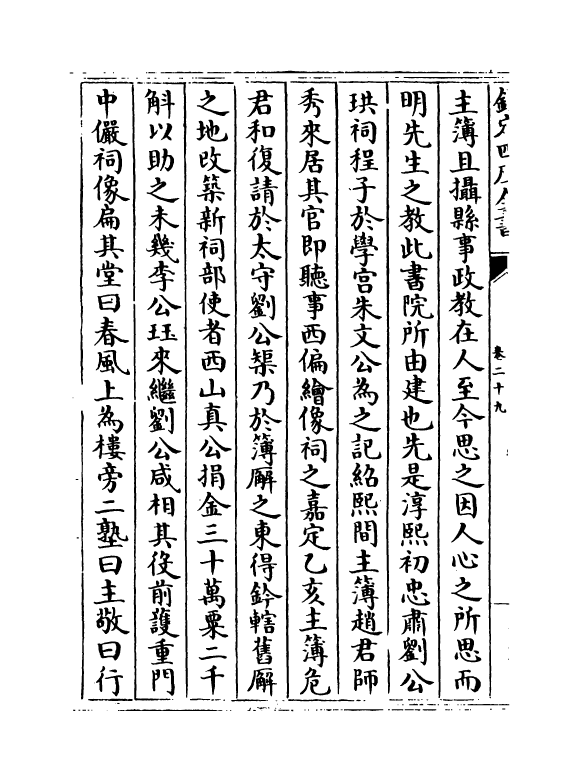 欽定四庫全書
卷二十九
主簿且攝縣事政教在人至今思之因人心之所思而
明先生之教此書院所由建也先是淳熙初忠肅劉公
珙祠程子於學宫朱文公為之記紹熙間主簿趙君師
秀來居其官即聽事西偏繪像祠之嘉定乙亥主簿危
君和復請於太守劉公榘乃於簿廨之東得鈐轄舊廨
之地改築新祠部使者西山真公捐金三十萬粟二千
斛以助之未幾李公珏來繼劉公咸相其役前護重門
中儼祠像扁其堂曰春風上為樓旁二塾曰主敬曰行